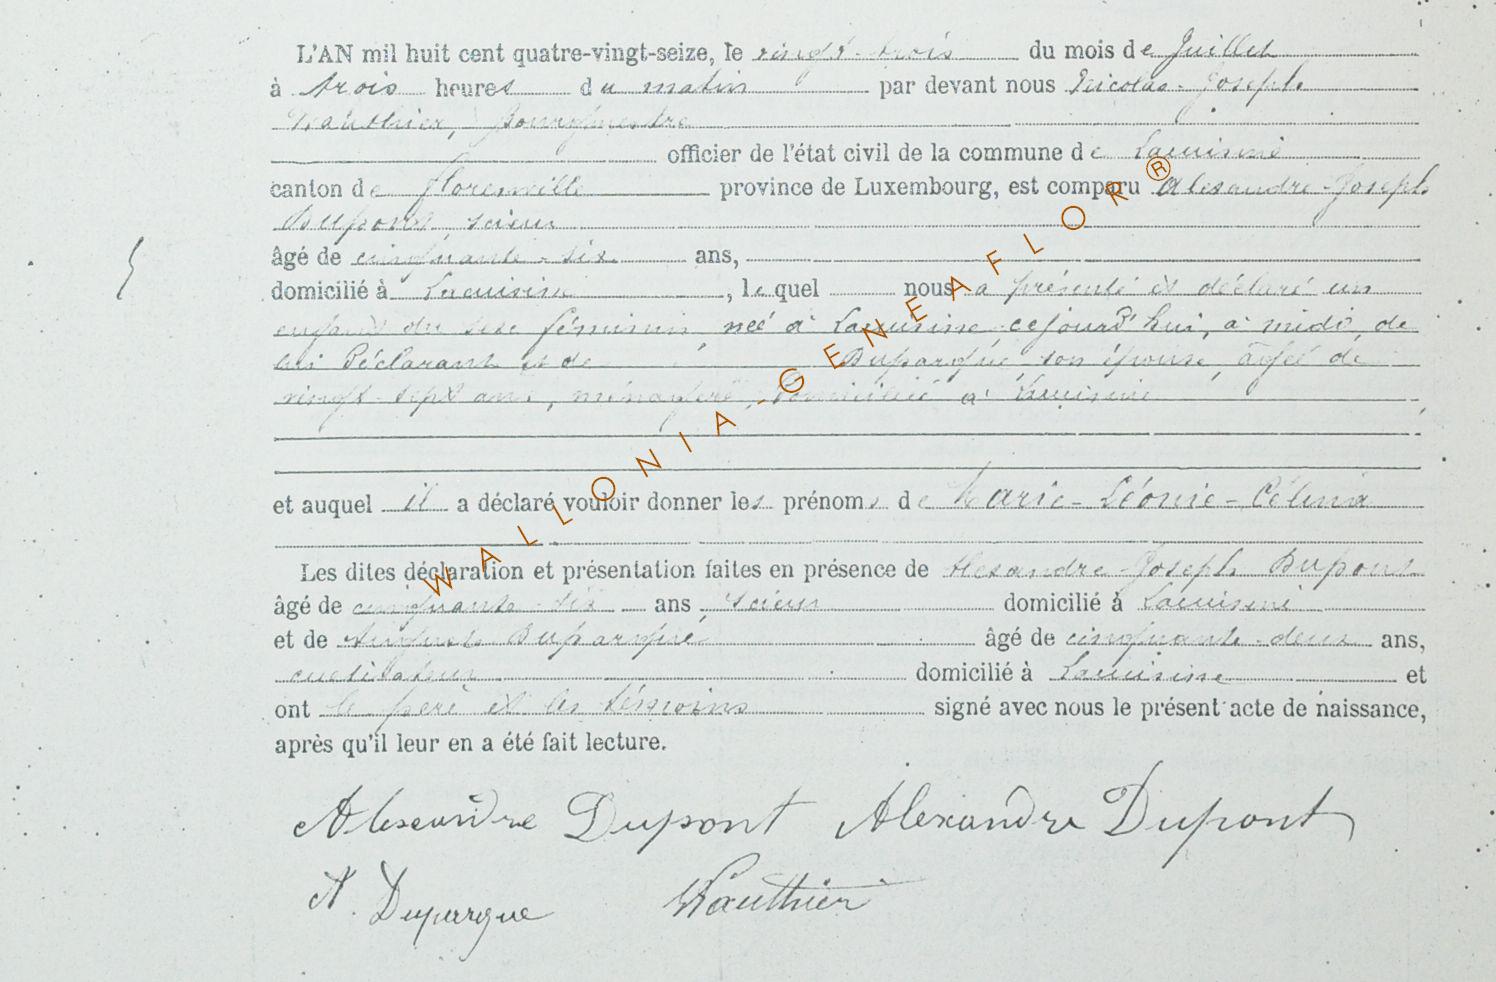 L'AN mil huit cent quatre-vingt-seize, le vingt-trois du mois de Juillet
à trois heures du matin par devant nous Nicolas-Joseph
Wauthier, bourgmestre
officier de l'état civil de la commune de Lacuisine
canton de florenville province de Luxembourg, est comparu Alexandre-Joseph
Dupont, scieur
âgé de cinquante-six ans,
domicilié à Lacuisine, lequel nous a présenté et déclaré un
enfant du sexe féminin, neé à Lacuisine cejourd'hui, à midi, de
lui Déclarant et de Duparque, son épouse, âgée de
vingt-sept ans, ménagère, domiciliée à Lacuisine
et auquel il a déclaré vouloir donner les prénoms de Marie-Léonie-Célina
Les dites déclaration et présentation faites en présence de Alexandre-Joseph Dupont
âgé de cinquante-six ans scieur domicilié à Lacuisine
et de Auguste Duparque âgé de cinquante-deux ans,
cultivateur domicilié à Lacuisine et
ont le père et les témoins signé avec nous le présent acte de naissance,
après qu'il leur en a été fait lecture.
Alexandre Dupont Alexandre Dupont
A. Duparque Wauthier
WALLONIA-GENEAFLOR®